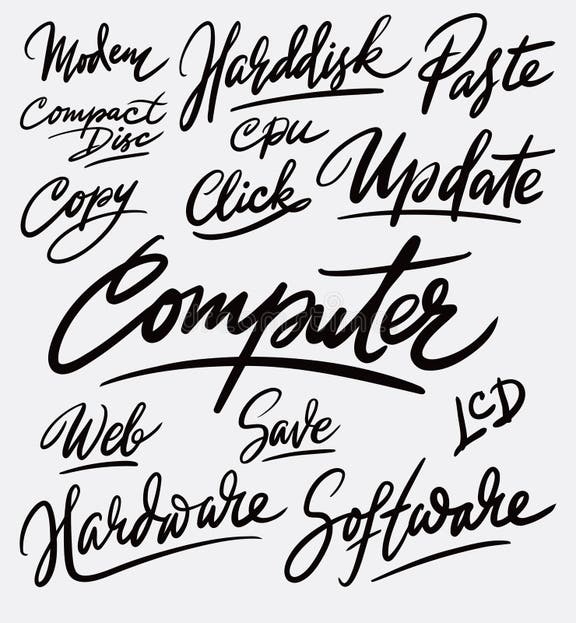 Modem Harddisk Paste
Compact
Disc
cpu
Copy Click Update
Computer
Web Save LCD
Hardware Software